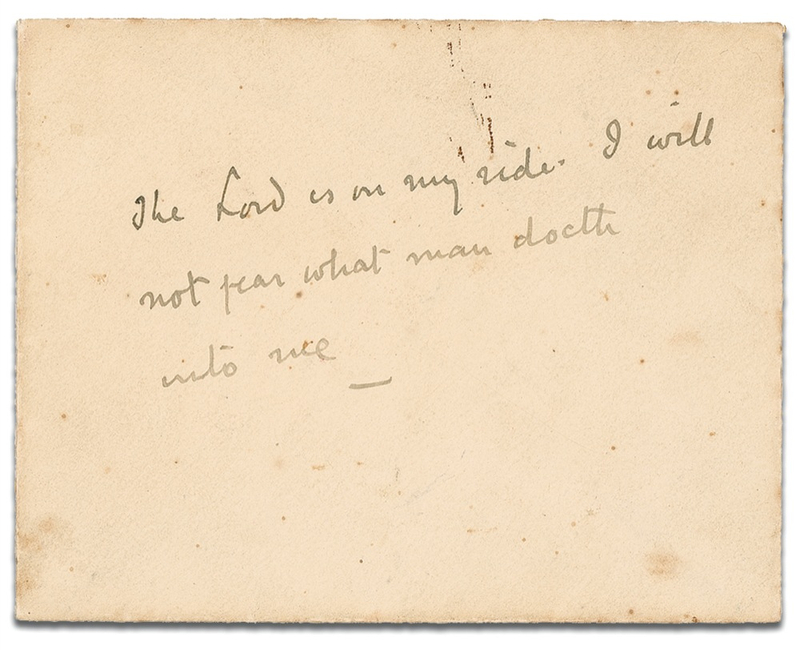 The Lord is on my side. I will
not fear what man doeth
unto me _